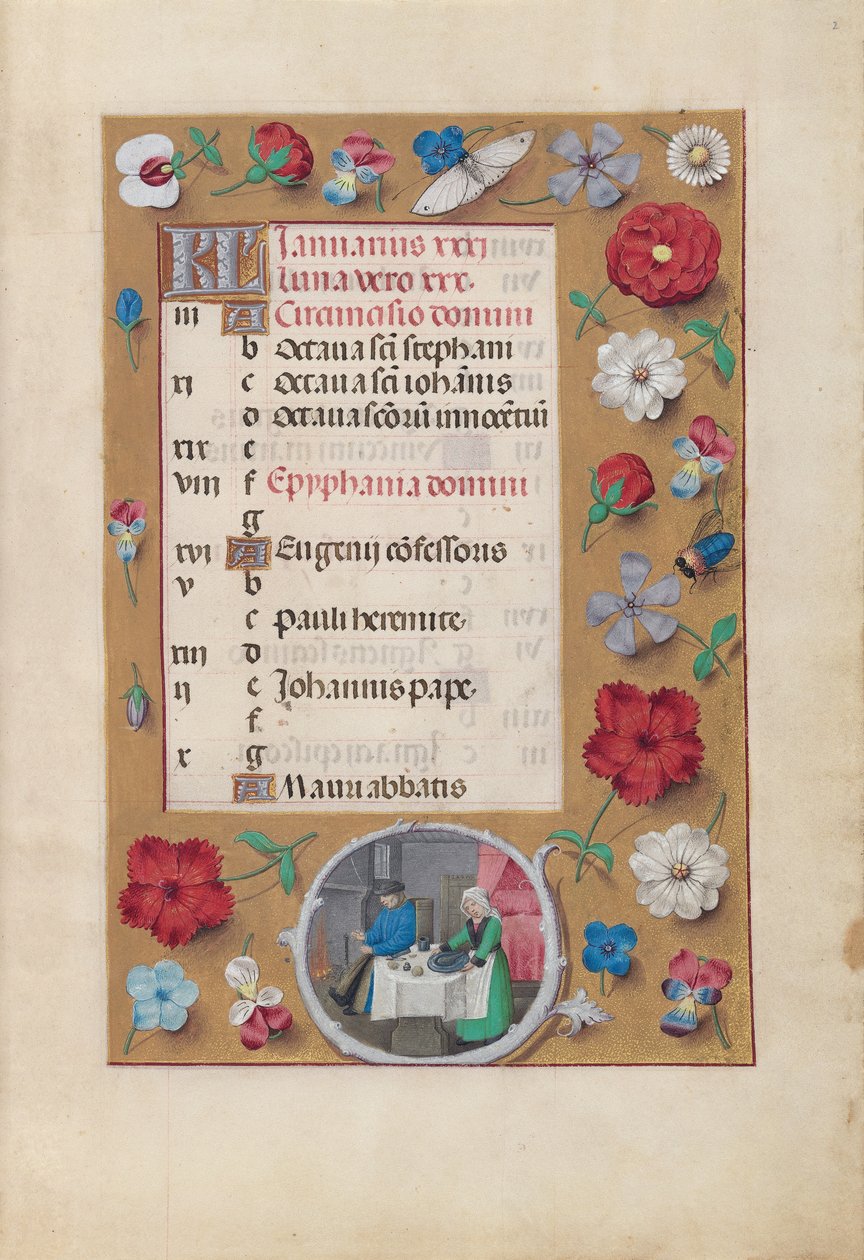 2
KL Januarius xxxj
Luna vero xxx.
iij A Circumcisio domini
b Octaua sc̄i stephani
xj c Octaua sc̄i ioh̄anis
d Octaua sc̄orū innocētiū
xix e
viij f Epyphania domini
g
xvj A Eugenij cōfessoris
v b
c pauli heremite.
xiij d
ij e Johannis pape.
f
x g
A Mauri abbatis